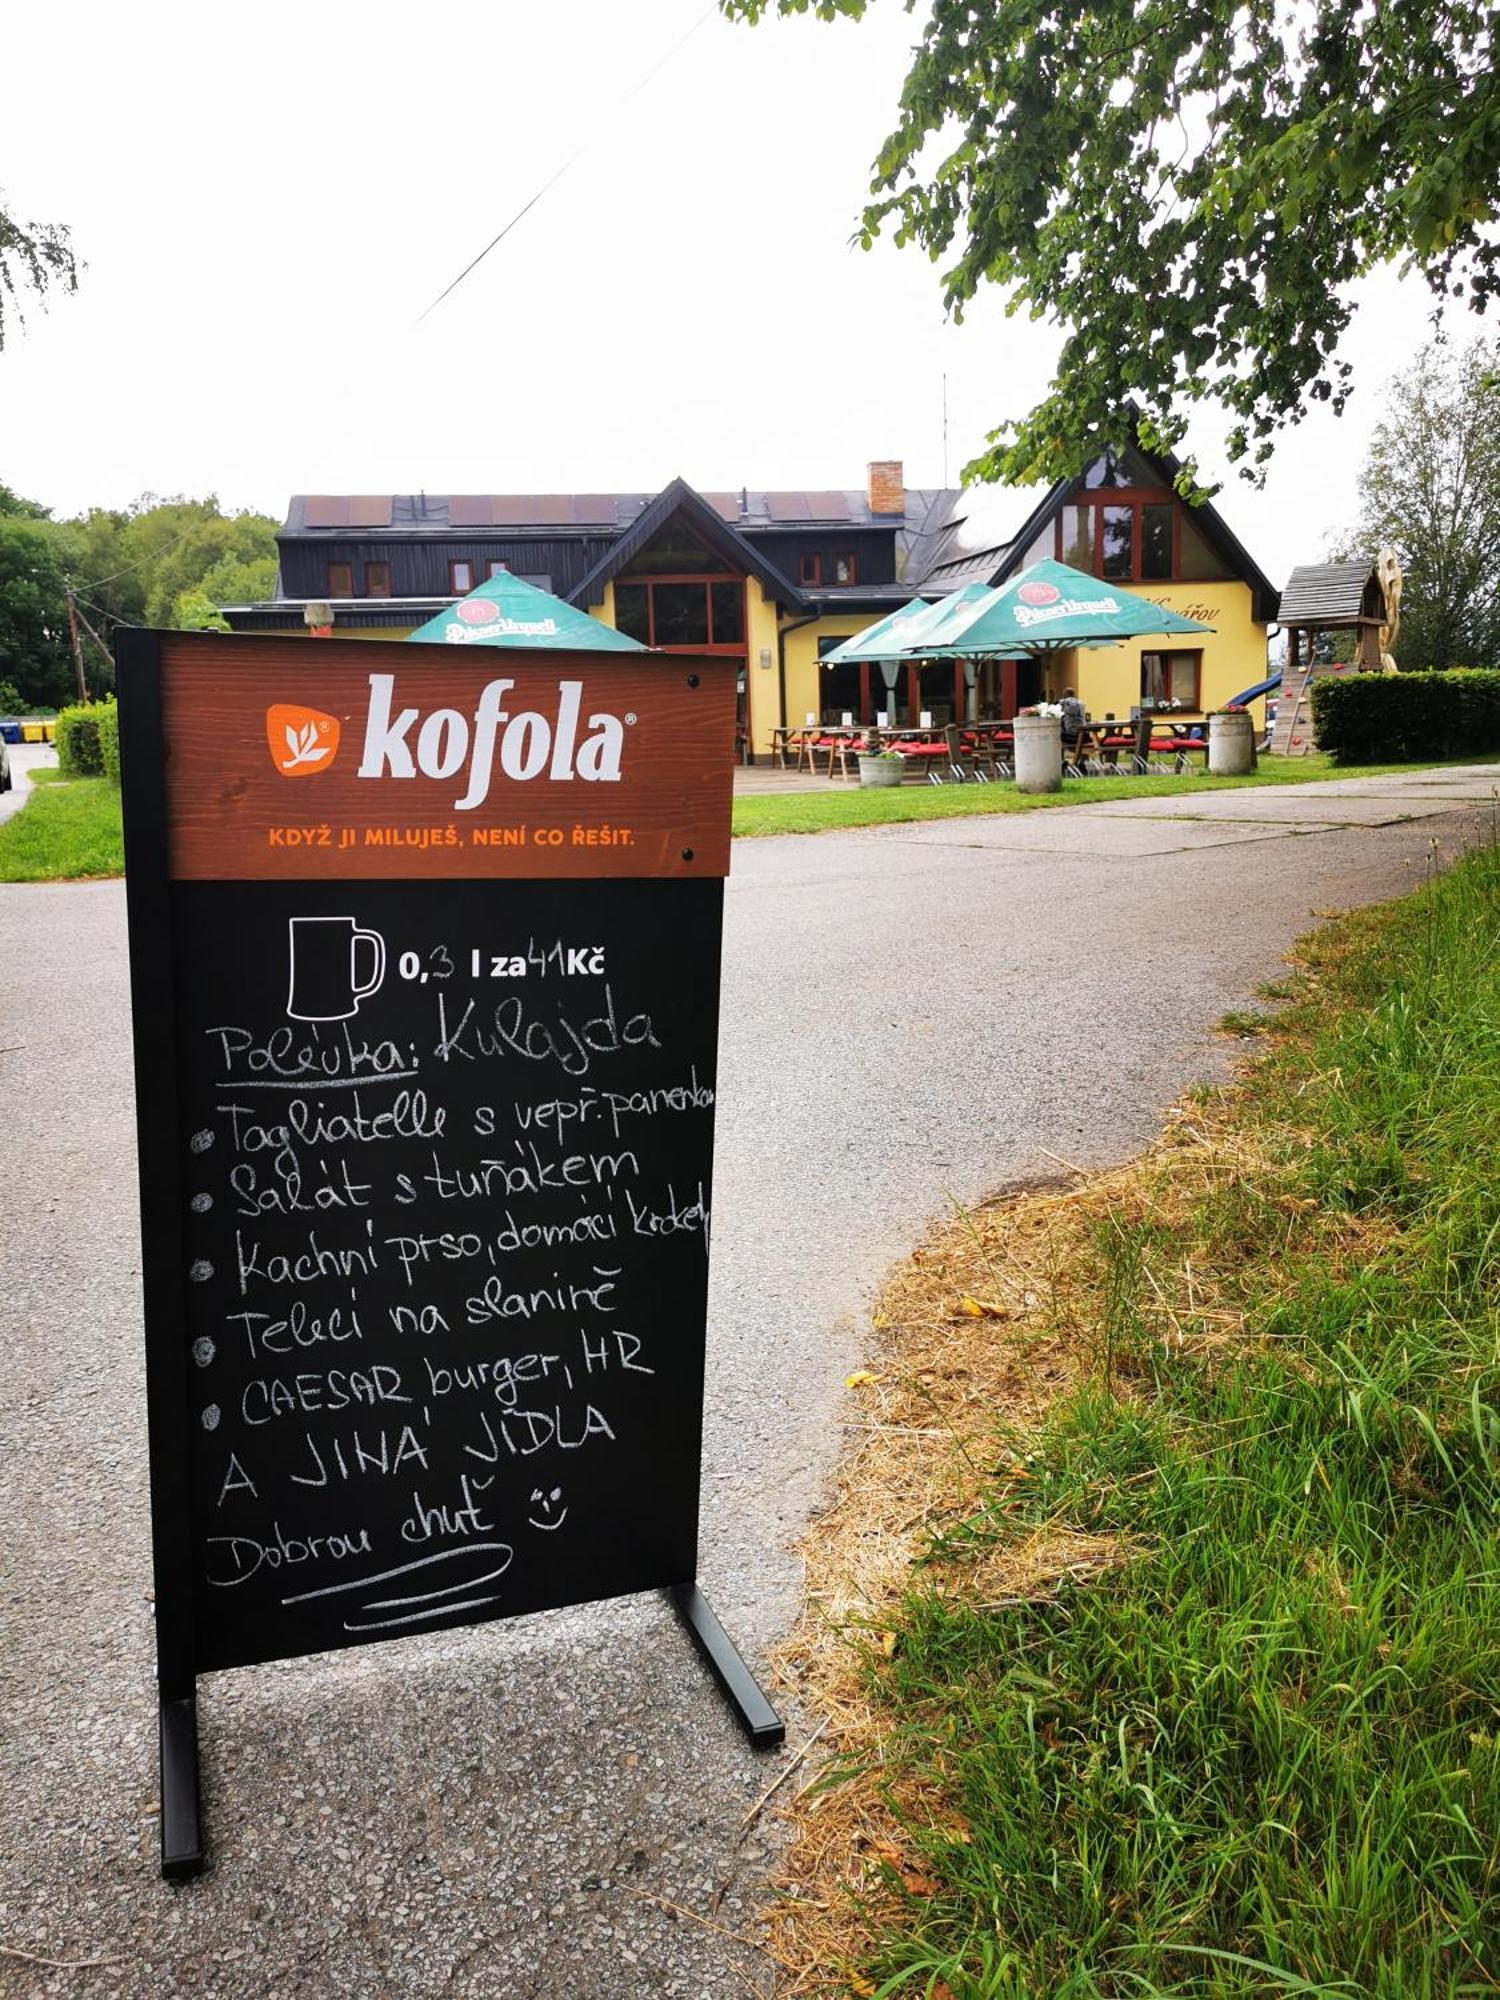 kofola®
KDYŽ JI MILUJEŠ, NENÍ CO ŘEŠIT.
0,3 l za 41 Kč
Polévka: Kulajda
• Tagliatelle s vepř. panenkou
• Salát s tuňákem
• Kachní prso, domácí krokety
• Telecí na slanině
• CAESAR burger, HR
A JINÁ JÍDLA
Dobrou chuť
Pilsner Urquell
Pilsner Urquell